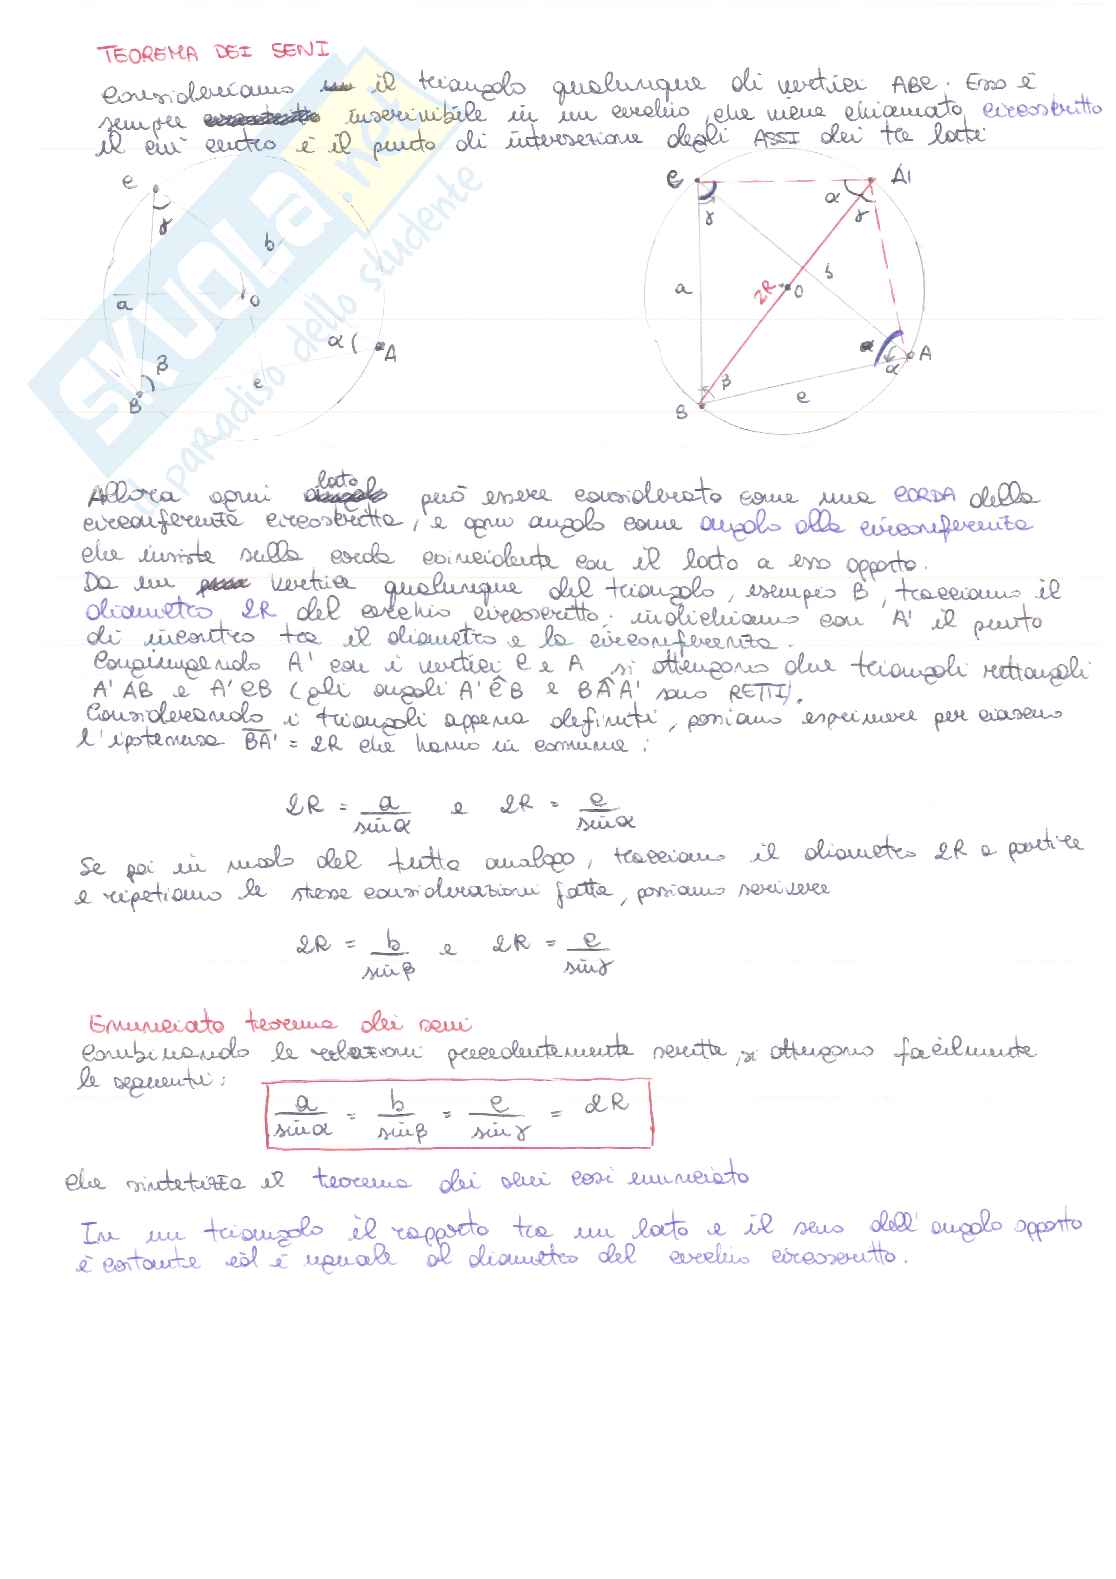 TEOREMA DEI SENI
Consideriamo il triangolo qualunque di vertici ABC. Esso è
sempre inscrivibile in un cerchio, che viene chiamato circoscritto
il cui centro è il punto di intersezione degli ASSI dei tre lati
C
γ
b
a
O
α
A
β
B
c
C
A'
γ
α
γ
b
a
2R
O
α
A
α
β
B
c
SKUOLA.net
il paradiso dello studente
lato
Allora ogni può essere considerato come una CORDA della
circonferenza circoscritta, e ogni angolo come angolo alla circonferenza
che insiste sulla corda coincidente con il lato a esso opposto.
Da un vertice qualunque del triangolo, esempio B, tracciamo il
diametro 2R del cerchio circoscritto; indichiamo con A' il punto
di incontro tra il diametro e la circonferenza.
Congiungendo A' con i vertici C e A si ottengono due triangoli rettangoli
A'AB e A'CB (gli angoli A'ĈB e BÂA' sono RETTI).
Considerando i triangoli appena definiti, possiamo esprimere per ciascuno
l'ipotenusa BA' = 2R che hanno in comune:
2R = a/sinα e 2R = c/sinα
Se poi in modo del tutto analogo, tracciamo il diametro 2R a partire
e ripetiamo le stesse considerazioni fatte, possiamo scrivere
2R = b/sinβ e 2R = c/sinγ
Enunciato teorema dei seni
Combinando le relazioni precedentemente scritte, si ottengono facilmente
le seguenti:
a/sinα = b/sinβ = c/sinγ = 2R
che sintetizza il teorema dei seni così enunciato
In un triangolo il rapporto tra un lato e il seno dell'angolo opposto
è costante ed è uguale al diametro del cerchio circoscritto.